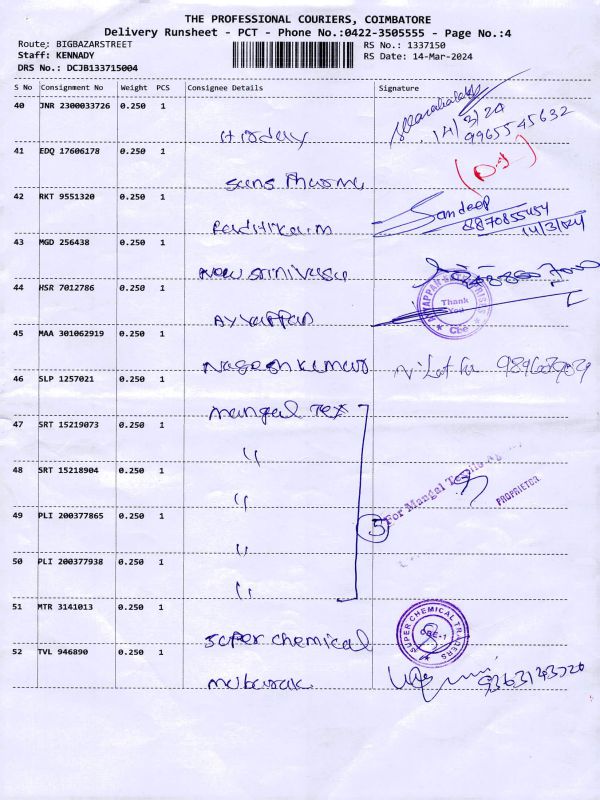 THE PROFESSIONAL COURIERS, COIMBATORE
Delivery Runsheet - PCT - Phone No.:0422-3505555 - Page No.:4
Route: BIGBAZARSTREET
RS No.: 1337150
Staff: KENNADY
RS Date: 14-Mar-2024
DRS No.: DCJB133715004
S No Consignment No Weight PCS Consignee Details Signature
40 JNR 2300033726 0.250 1
14/3/24
9965545632
41 EDQ 17606178 0.250 1
Suns Pharma
42 RKT 9551320 0.250 1 Sandeep
8870855454
14/3/024
43 MGD 256438 0.250 1
New Srinivasa
44 HSR 7012786 0.250 1
AYYAPPAN ENTERPRISES
Thank
You
Cbe
Ayyappan
45 MAA 301062919 0.250 1
Nagesh Kumar
46 SLP 1257021 0.250 1
Mangal Tex
47 SRT 15219073 0.250 1
"
48 SRT 15218904 0.250 1
"
For Mangal Textile
PROPRIETOR
49 PLI 200377865 0.250 1
5
"
50 PLI 200377938 0.250 1
"
51 MTR 3141013 0.250 1
SUPER CHEMICAL TRADERS
CBE-1
Super chemical
52 TVL 946890 0.250 1
Mubarak
9363143720